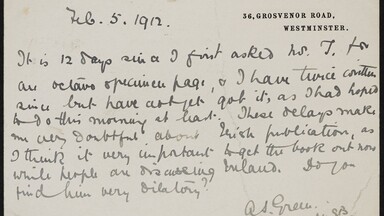 36, GROSVENOR ROAD,
WESTMINSTER.
Feb. 5. 1912.
It is 12 days since I first asked Mr. T. for
an octavo specimen page, & I have twice written
since but have not yet got it, as I had hoped
to do this morning at last. These delays make
me very doubtful about Irish publication, as
I think it very important to get the book out now
while people are discussing Ireland. Do you
find him very dilatory?
A. S. Green.